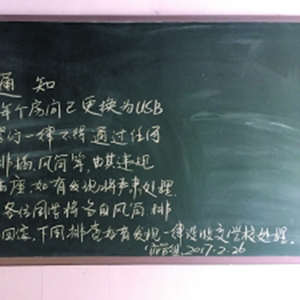 通 知
每个房间已更换为USB
一律不得通过任何
排插,风筒等,尤其违规
座,如有发现将来处理.
各位同学将各自风筒 排
回家,下周排查如有发现一律没收交学校处理.
2017.2.26